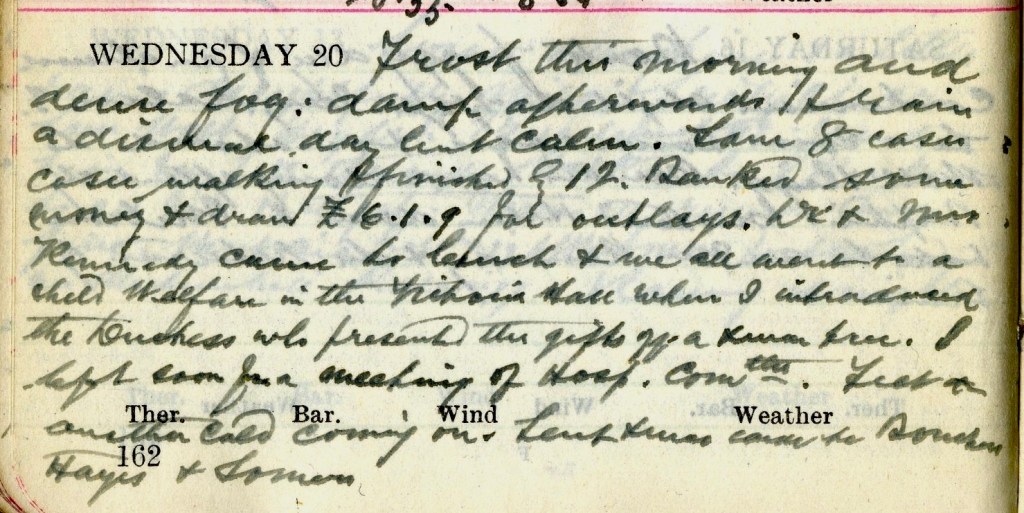 WEDNESDAY 20 Frost this morning and
dense fog. damp afterwards & rain
a dismal day but calm. Saw 8 cases
cases walking & finished by 12. Banked some
money & draw £6.1.9 for outlays. Dr & Mrs
Kennedy came to lunch & we all went to a
child Welfare in the Victoria Hall when I introduced
the Duchess who presented the gifts off a Xmas tree. I
left soon for a meeting of Hosp. Comtte. Felt
another cold coming on. Sent Xmas cards to
Hayes &
Ther. Bar. Wind Weather
162